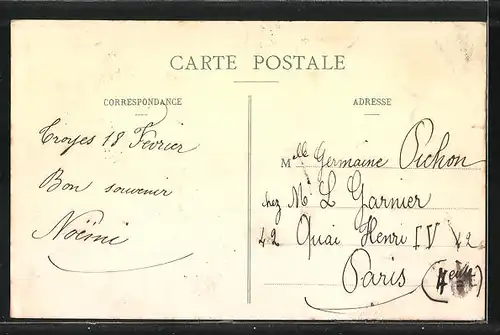 CARTE POSTALE
CORRESPONDANCE
Troyes 18 Février
Bon souvenir
Noëmi
ADRESSE
Melle Germaine Pichon
chez Mr L Garnier
42 Quai Henri IV 42
Paris